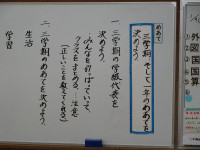 めあて
三学期、そして一年のめあてを
決めよう。
一 三学期の学級代表を
決めよう。
・みんなを引っぱっていて、
クラスをまとめる、注意
(正しいことを教えてくれる)
二、三学期のめあてを決めよう。
生活
学習